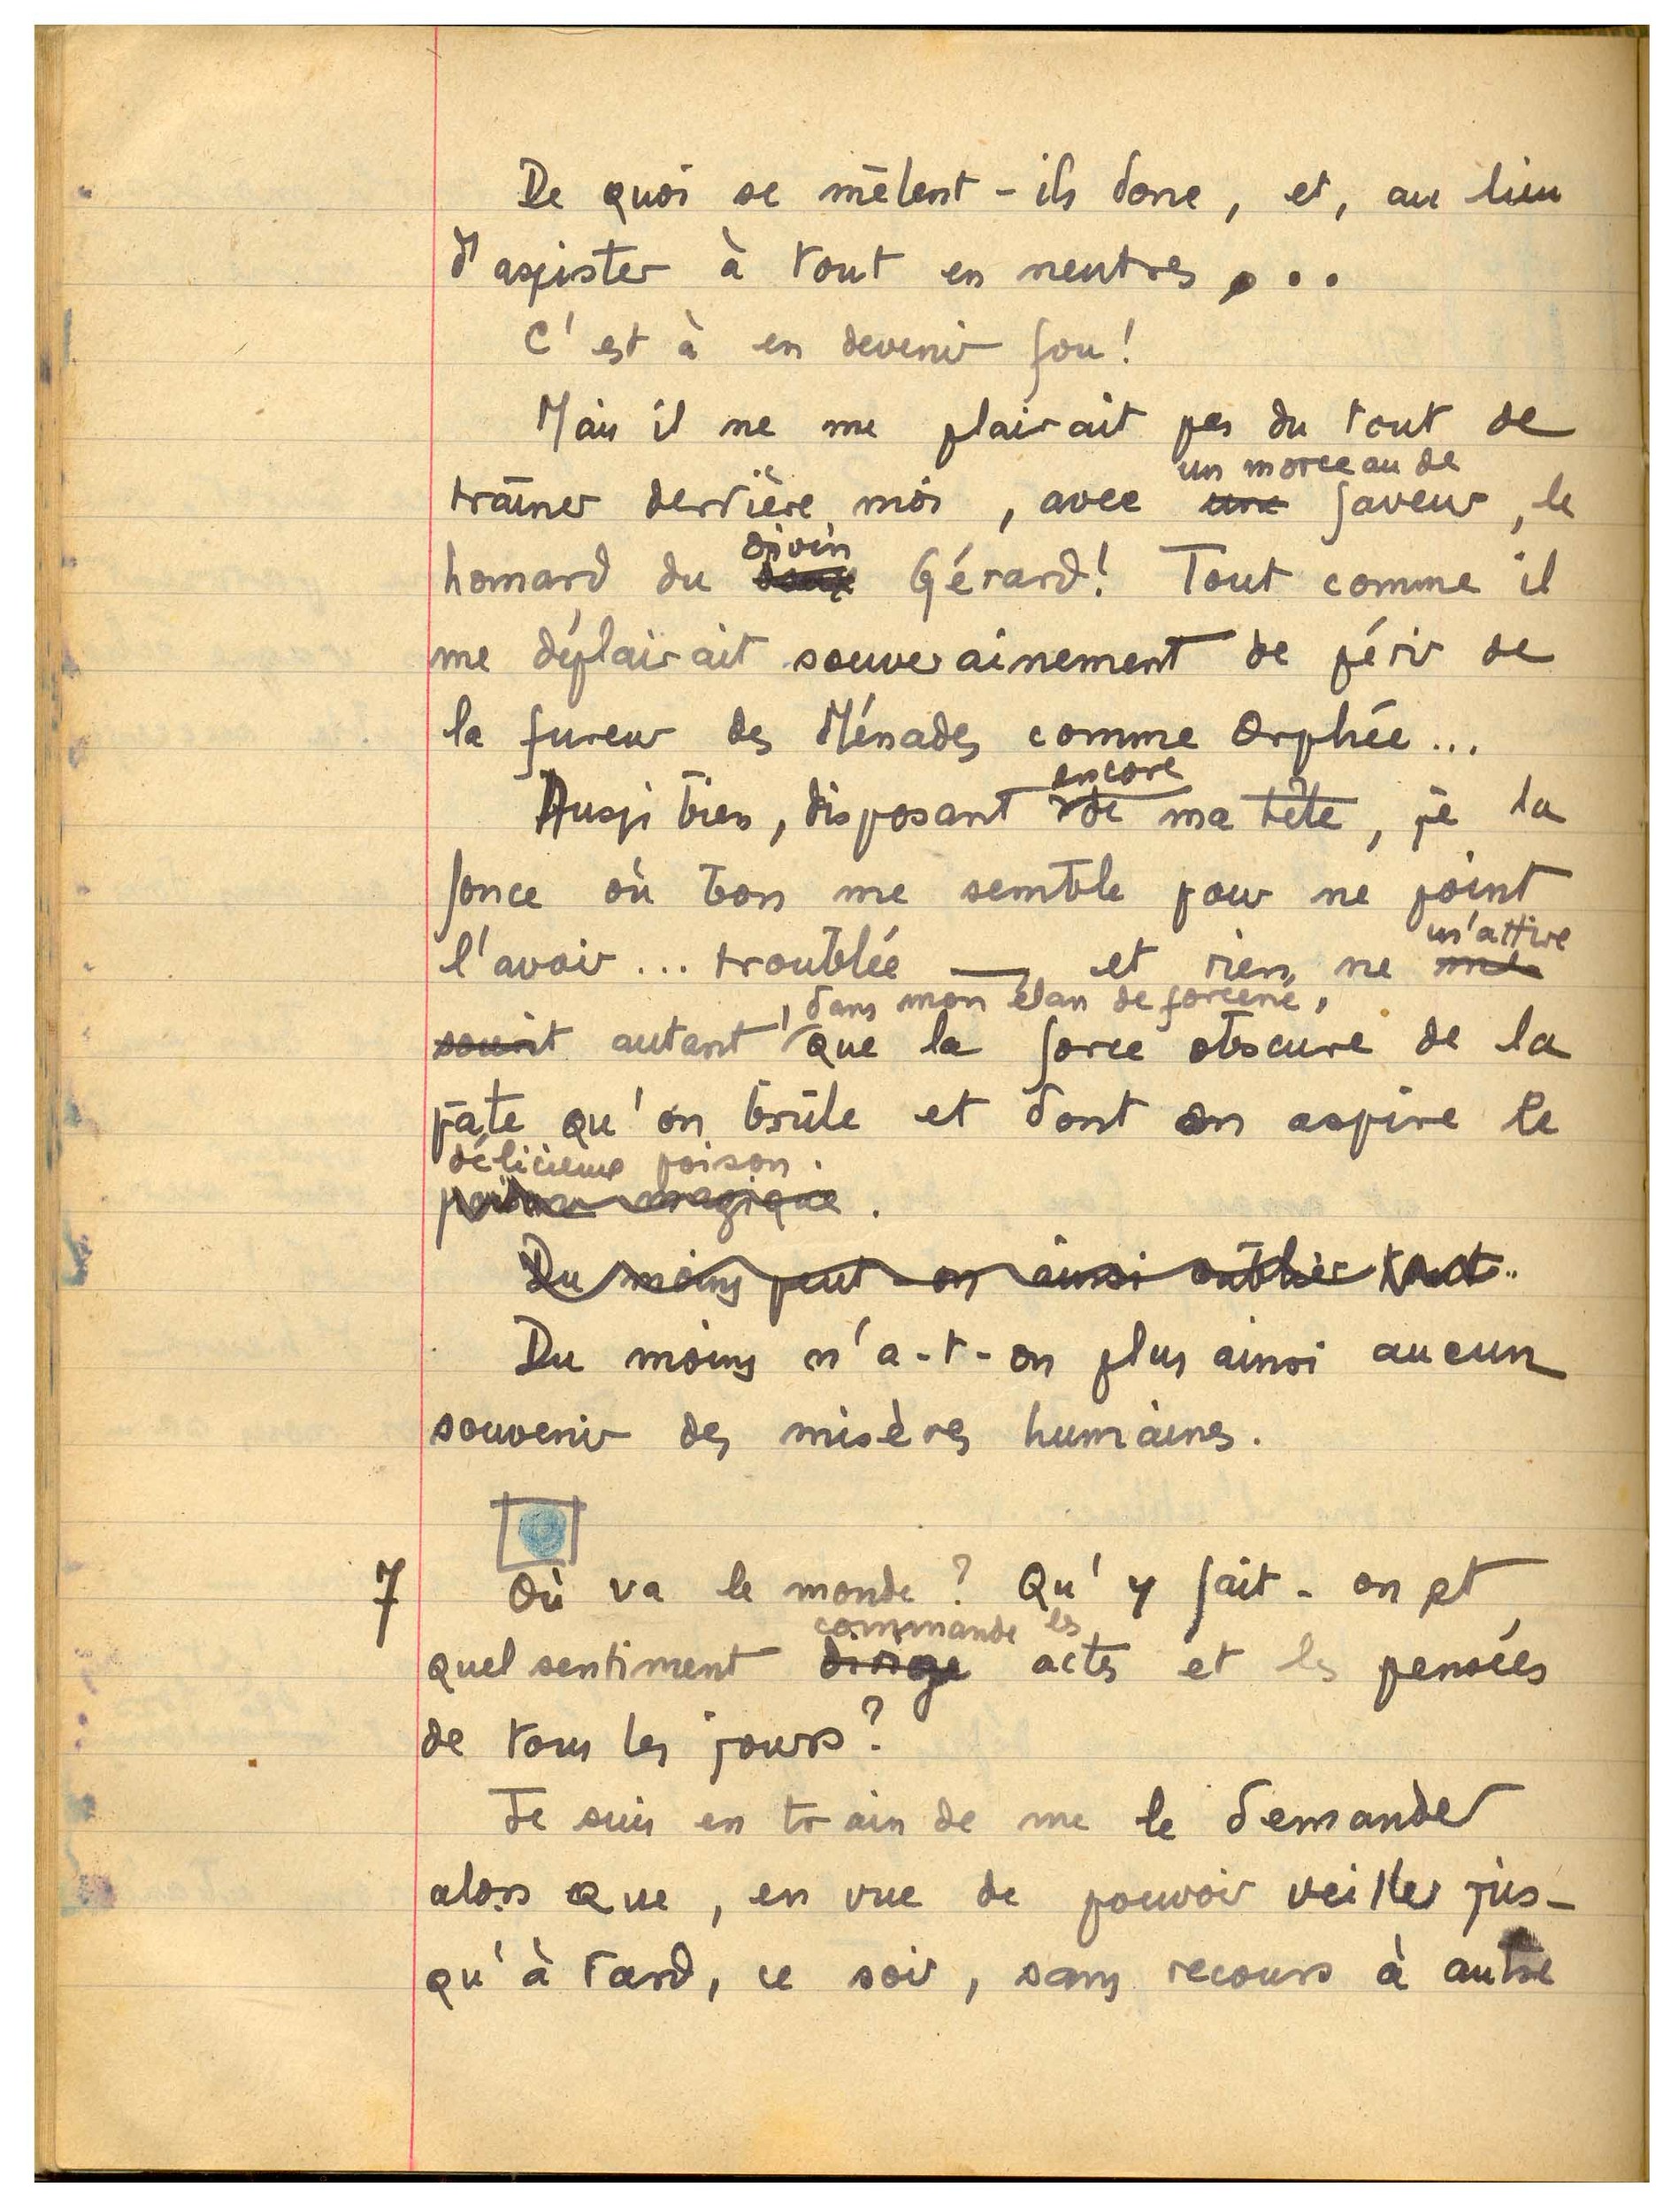 De quoi se mêlent-ils donc, et, au lieu
d'assister à tout en neutres, ...
C'est à en devenir fou !
Mais il ne me plairait pas du tout de
un morceau de
traîner derrière moi, avec une faveur, le
divin
homard du doux Gérard ! Tout comme il
me déplairait souverainement de périr de
la fureur des Ménades comme Orphée...
encore
Aussi bien, disposant de ma tête, je la
fonce où bon me semble pour ne point
m'attire
l'avoir... troublée —, et rien ne me
, dans mon élan de forcené,
sourit autant que la force obscure de la
pâte qu'on brûle et dont on aspire le
délicieux poison.
poison magique.
Du moins peut-on ainsi oublier tout..
Du moins n'a-t-on plus ainsi aucun
souvenir des misères humaines.
7 Où va le monde ? Qu'y fait-on et
commande les
quel sentiment dirige actes et les pensées
de tous les jours ?
Je suis en train de me le demander
alors que, en vue de pouvoir veiller jus-
qu'à tard, ce soir, sans recours à autre